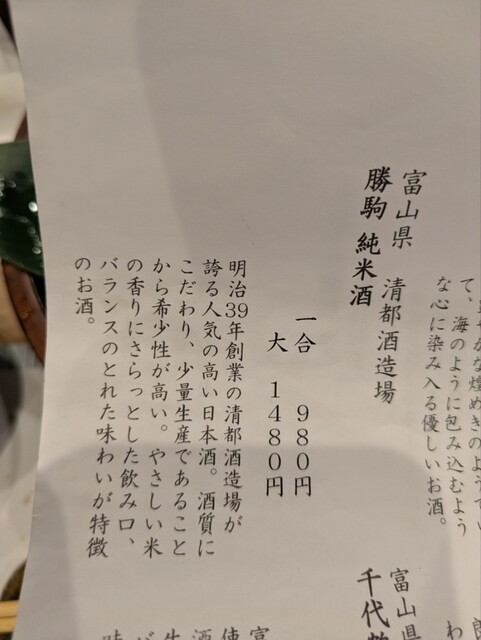 て、海のように包み込むよう
な心に染み入る優しいお酒。
富山県 清都酒造場
勝駒 純米酒
一合 980円
大 1480円
明治39年創業の清都酒造場が
誇る人気の高い日本酒。酒質に
こだわり、少量生産であること
から希少性が高い。やさしい米
の香りにさらっとした飲み口、
バランスのとれた味わいが特徴
のお酒。
富山県
千代鶴